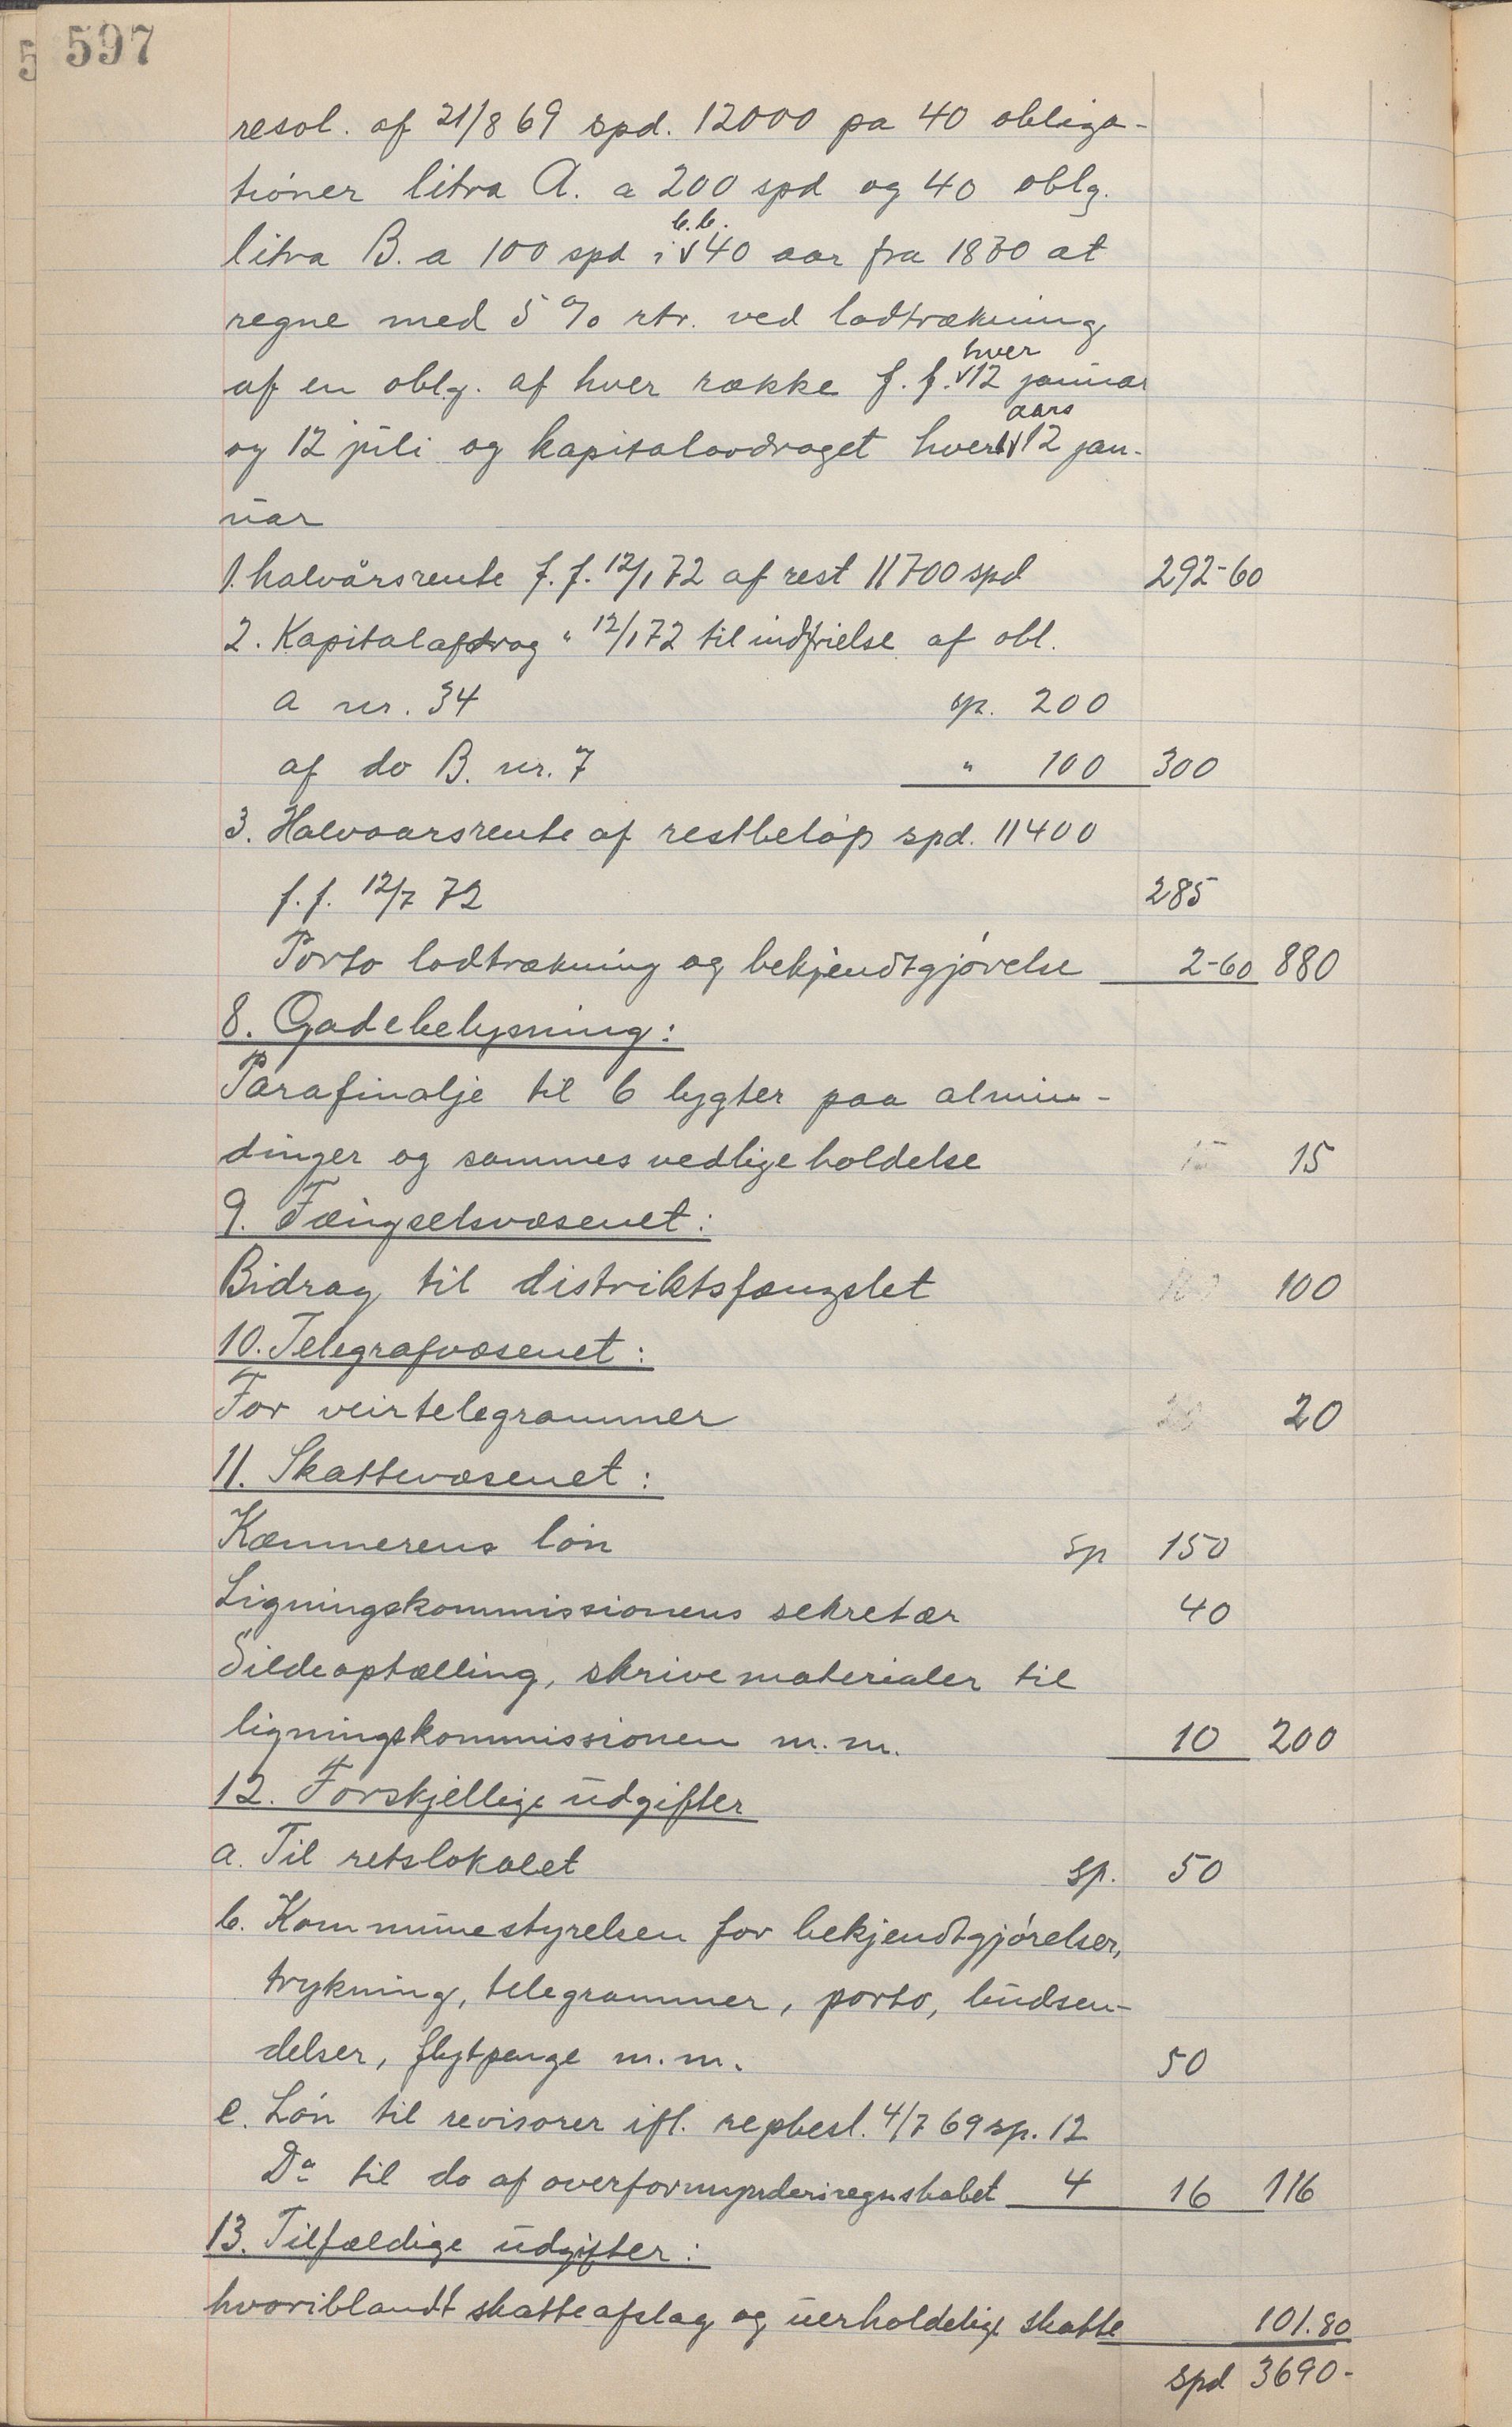 597
resol. af 21/8 69 spd. 12000 pa 40 obliga-
tioner litra A. a 200 spd og 40 oblg.
litra B. a 100 spd i b.b. 40 aar fra 1870 at
regne med 5 % rtr. ved lodtrækning
af en oblg. af hver række f.f. hver 12 januar
og 12 juli og kapitalavdraget hvert aars 12 jan-
uar
1. halvårsrente f.f. 12/1 72 af rest 11700 spd 292-60
2. Kapitalafdrag " 12/1 72 til indfrielse af obl.
a nr. 34 sp. 200
af do B. nr. 7 " 100 300
3. Halvaarsrente af restbeløp spd. 11400
f.f. 12/7 72 285
Porto lodtrækning og bekjendtgjørelse 2-60 880
8. Gadebelysning:
Parafinolje til 6 lygter paa almin-
dinger og sammes vedligeholdelse 15 15
9. Fængselsvæsenet:
Bidrag til distriktsfængslet 100 100
10. Telegrafvæsenet:
For veirtelegrammer 20 20
11. Skattevæsenet:
Kæmnerens løn sp 150
Ligningskommissionens sekretær 40
Sildeoptælling, skrivematerialer til
ligningskommissionen m.m. 10 200
12. Forskjellige udgifter
a. Til retslokalet sp. 50
b. Kommunestyrelsen for bekjendtgjørelser,
trykning, telegrammer, porto, budsen-
delser, flytpenge m.m. 50
c. Løn til revisorer ifl. repbesl. 4/7 69 sp. 12
Do til do af overformynderiregnskabet 4 16 116
13. Tilfældige udgifter:
hvoriblandt skatteafslag og uerholdelige skatte 101.80
spd 3690-